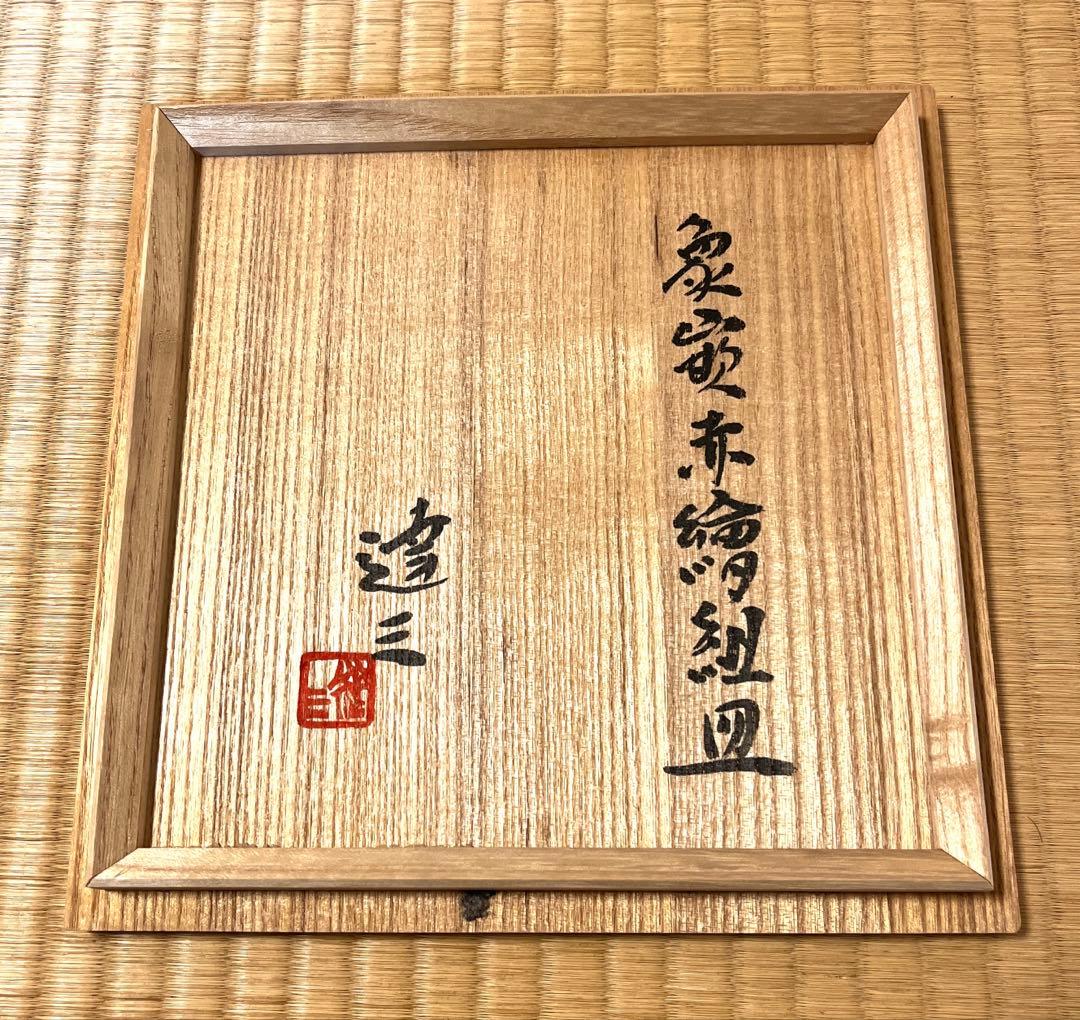 象嵌赤繪組皿
達三